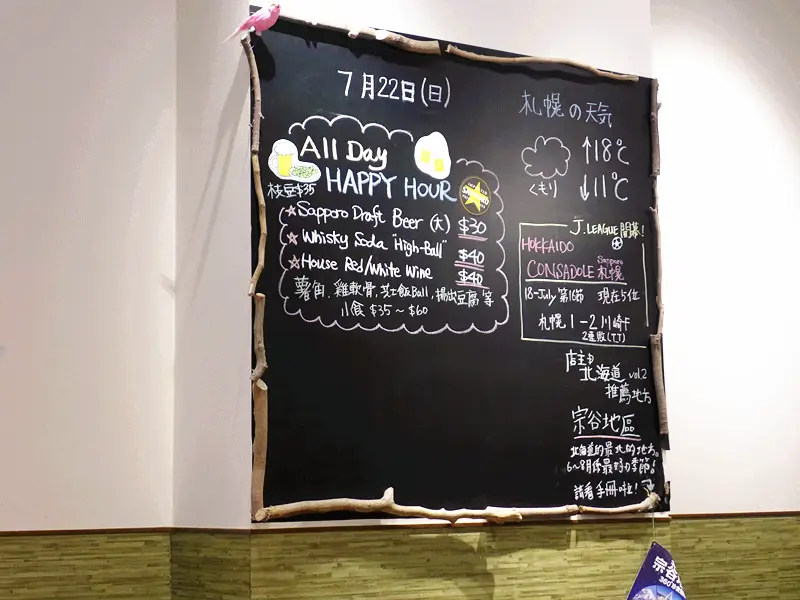 7月22日(日)
All Day
HAPPY HOUR
枝豆$35
☆Sapporo Draft Beer (大) $30
☆Whisky Soda "High-Ball" $40
☆House Red/White Wine $40
薯角, 雞軟骨, 芝士飯Ball, 揚出豆腐 等
小食 $35～$60
札幌の天気
くもり
↑18℃
↓11℃
J.LEAGUE 開幕!
HOKKAIDO
Sapporo
CONSADOLE 札幌
18-July 第16節 現在5位
札幌 1-2 川崎F
2連敗(T.T)
店主の
北海道 vol.2
推薦地方
宗谷地區
北海道的最北的地方。
6~8月係最好の季節!
請看手冊啦!
宗谷
360